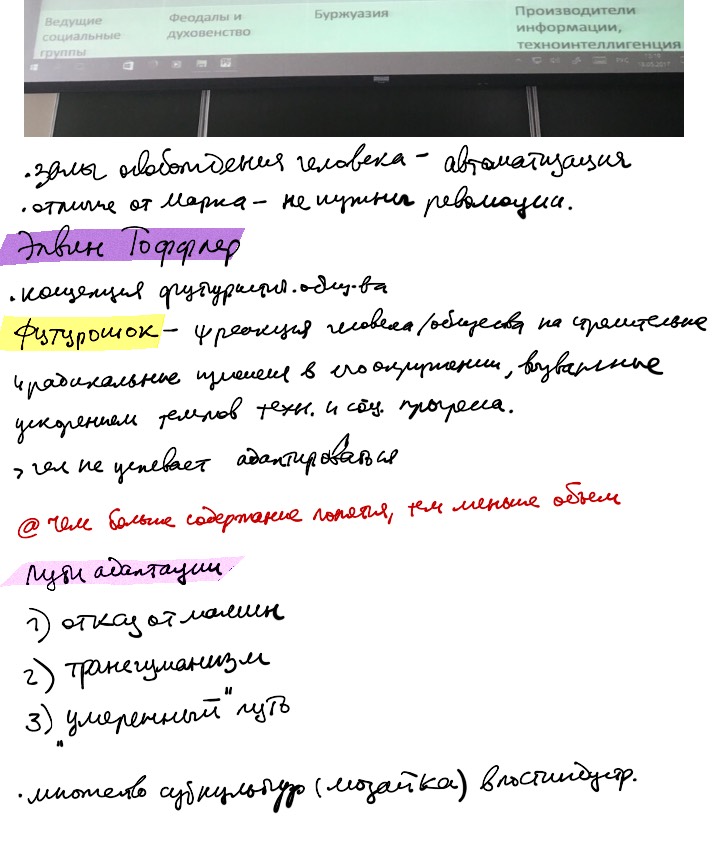 Ведущие социальные группы
Феодалы и духовенство
Буржуазия
Производители информации, техноинтеллигенция
РУС
• освобождения человека – автоматизация
• отличие от Маркса – не нужны революции.
Элвин Тоффлер
• концепция футуристич. общ-ва
Футурошок – ψ реакция человека/общества на стремительные
и радикальные в его окружении, вызванные
ускорением темпов техн. и соц. прогресса.
чел не успевает адаптироваться
@ чем больше содержание понятия, тем меньше объем
пути адаптации
1) отказ от машин
2) трансгуманизм
3) "умеренный" путь
• множество субкультур (мозайка) в постиндустр.